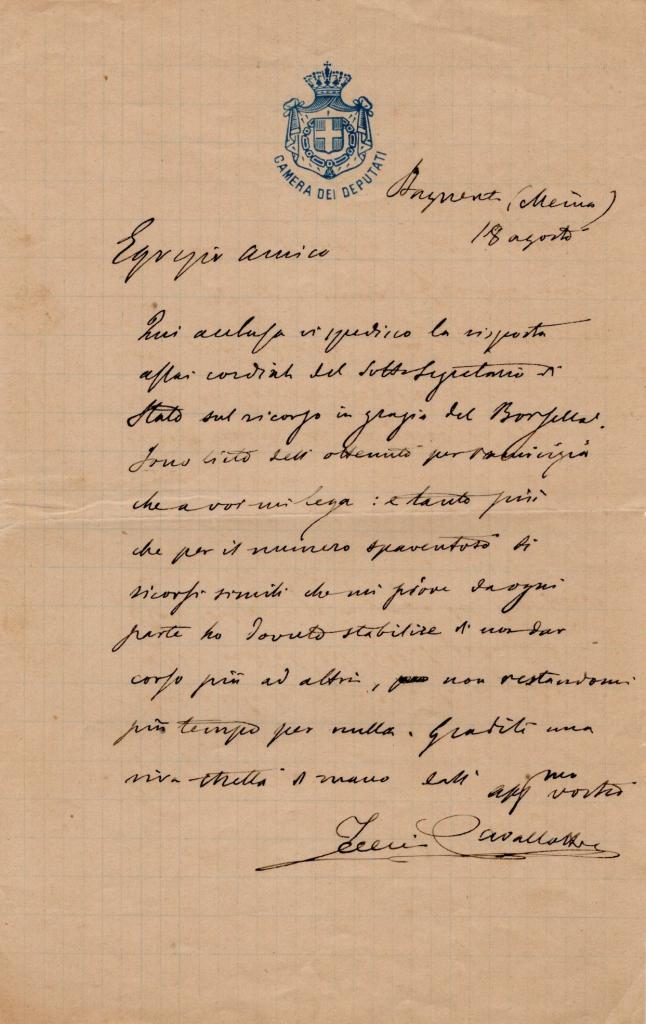 CAMERA DEI DEPUTATI
(Meina)
18 agosto
Egregio amico
Qui acclusa vi spedisco la risposta
assai cordiale del Sottosegretario di
Stato sul ricorso in grazia del
Sono lieto dell'ottenuto per l'amicizia
che a voi mi lega: e tanto più
che per il numero spaventoso di
ricorsi simili che mi piove da ogni
parte ho dovuto stabilire di non dar
corso più ad altri, non restandomi
più tempo per nulla. Gradite una
viva stretta di mano dall' aff mo vostro
Felice Cavallotti